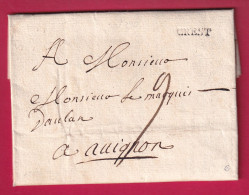 CREST
A Monsieur
Monsieur le marquis
Daulan
a avignon